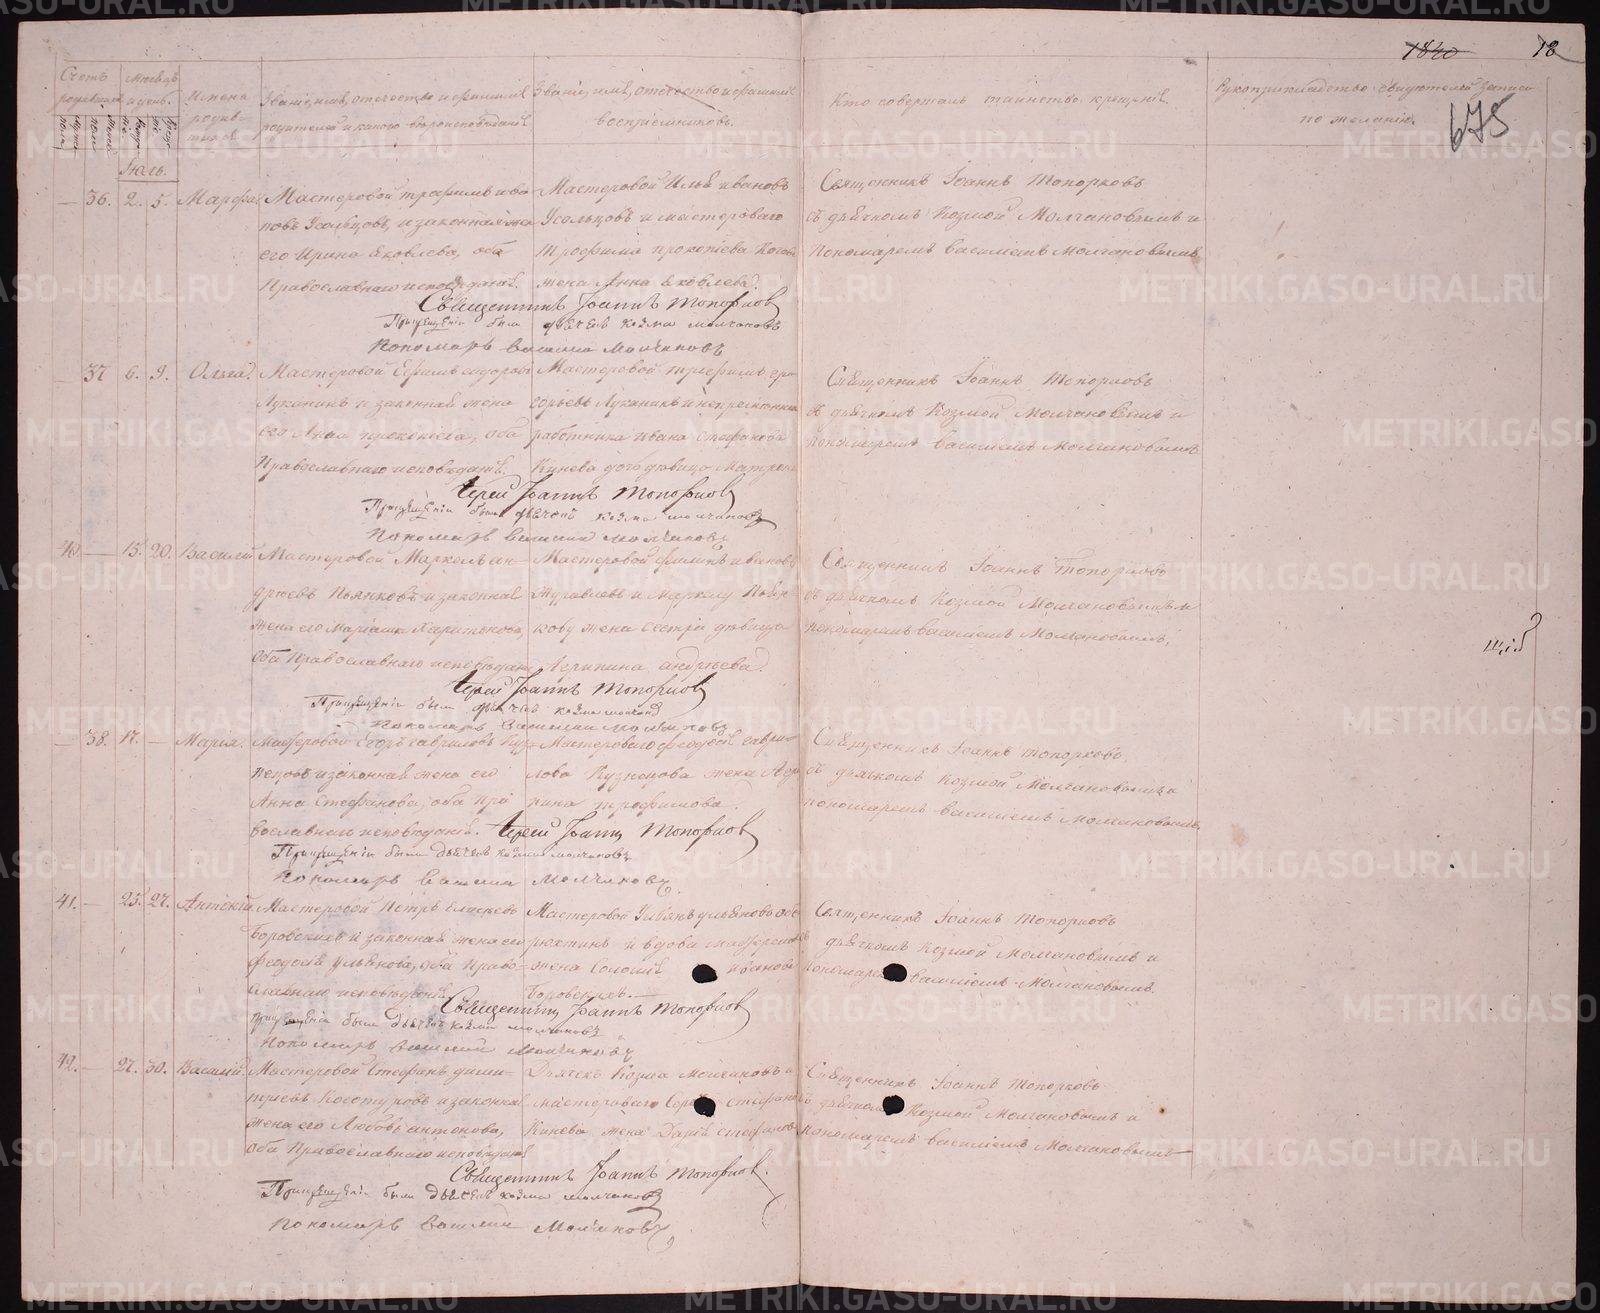 1840 18
675
Счетъ родившихся
Месяцъ и день.
Имена родив-шихся.
Званіе, имя, отчество и фамилія родителей и какого вѣроисповѣданія
Званіе, имя, отчество и фамилія воспріемниковъ.
Кто совершалъ таинство крещенія.
Рукоприкладство свидѣтелей записи по желанію.
Іюль.
36. 2. 5. Марфа
Мастеровой Трофимъ Ива
новъ Усольцовъ, и законная жена
его Ирина Яковлева, оба
Православнаго исповѣданія.
Мастеровой Илья Ивановъ
Усольцовъ и мастероваго
Трофима Прокопіева
жена Анна Яковлева.
Священникъ Іоаннъ Топорковъ
съ дьячкомъ Козмой Молчановымъ и
пономаремъ Василіемъ Молчановымъ
Священникъ Іоаннъ Топорковъ
При крещеніи были дьячекъ Козма Молчановъ
Пономарь Василій Молчановъ
37 6. 9. Ольга.
Мастеровой Ефимъ Сидоровъ
Луканинъ и законная жена
его Анна Прокопіева, оба
Православнаго исповѣданія.
Мастеровой Трефилъ Гри
горьевъ Луканинъ и непремѣннаго
работника Ивана Стефанова
Кинева дочь дѣвица Матрона
Священникъ Іоаннъ Топорковъ
съ дьячкомъ Козмой Молчановымъ и
пономаремъ Василіемъ Молчановымъ
Іерей Іоаннъ Топорковъ
При крещеніи были дьячекъ Козма Молчановъ
Пономарь Василій Молчановъ
40. 15. 20. Василій
Мастеровой Маркелъ Ан-
дреевъ Пьянковъ и законная
жена его Маріамна Харитонова,
оба Православнаго исповѣданія
Мастеровой Филипъ Ивановъ
Журавлевъ и Маркелу Пьян
кову жена сестра дѣвица
Агрипина Андреева.
Священникъ Іоаннъ Топорковъ
съ дьячкомъ Козмой Молчановымъ и
пономаремъ Василіемъ Молчановымъ,
Іерей Іоаннъ Топорковъ
При крещеніи были дьячекъ Козма Молчановъ
Пономарь Василій Молчановъ
38. 17. Марія.
Мастеровой Егоръ Гавриловъ Куз-
нецовъ и законная жена его
Анна Стефанова, оба Пра
вославнаго исповѣданія.
Мастероваго Феодосія Гаври-
лова Кузнецова жена Агри
пина Трофимова.
Священникъ Іоаннъ Топорковъ,
съ дьячкомъ Козмой Молчановымъ и
пономаремъ Василіемъ Молчановымъ,
Іерей Іоаннъ Топорковъ
При крещеніи были дьячекъ Козма Молчановъ
Пономарь Василій Молчановъ.
41. 25. 27. Антоній
Мастеровой Петръ Елисеевъ
Боровскихъ и законная жена его
Феодосія Ульянова, оба Право-
славнаго исповѣданія.
Мастеровой Ульянъ Ульяновъ
и вдова мастероваго
жена Соломія Иванова
Боровскихъ.
Священникъ Іоаннъ Топорковъ
съ дьячкомъ Козмой Молчановымъ и
пономаремъ Василіемъ Молчановымъ.
Священникъ Іоаннъ Топорковъ
При крещеніи были дьячекъ Козма Молчановъ
Пономарь Василій Молчановъ
42. 27. 30. Василій.
Мастеровой Стефанъ Дими-
тріевъ Коготуровъ и законная
жена его Любовь Антонова,
оба Православнаго исповѣданія
Дьячекъ Козма Молчановъ и
мастероваго Сергѣя Стефанова
Кинева жена Дарія Стефанова
Священникъ Іоаннъ Топорковъ
съ дьячкомъ Козмой Молчановымъ и
пономаремъ Василіемъ Молчановымъ
Священникъ Іоаннъ Топорковъ.
При крещеніи были дьячекъ Козма Молчановъ
Пономарь Василій Молчановъ,
METRIKI.GASO-URAL.RU